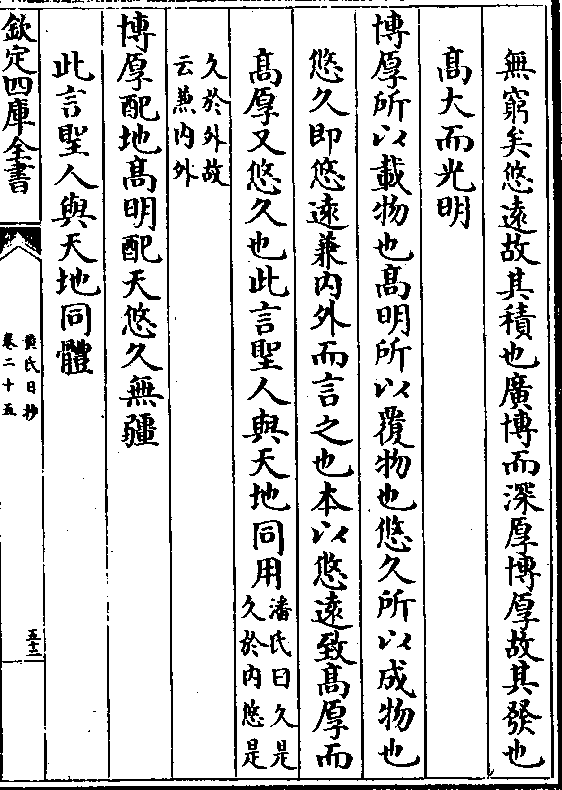 無窮矣悠遠故其積也廣博而深厚博厚故其發也
高大而光明
博厚所以載物也高明所以覆物也悠久所以成物也
悠久即悠遠兼内外而言之也本以悠遠致高厚而
高厚又悠久也此言聖人與天地同用
潘氏曰久是
久於内悠是
久於外故
云兼内外
博厚配地高明配天悠久無疆
此言聖人與天地同體
欽定四庫全書
黃氏日抄
卷二十五
五十三